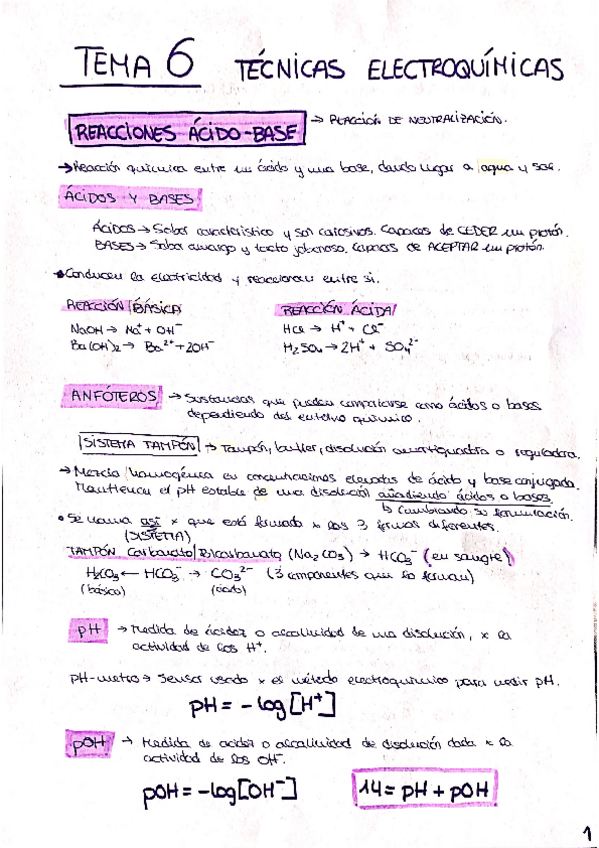 TEMA 6 TÉCNICAS ELECTROQUÍMICAS
REACCIONES ÁCIDO-BASE → REACCIÓN DE NEUTRALIZACIÓN.
→ Reacción química entre un ácido y una base, dando lugar a agua y sal.
ÁCIDOS Y BASES
ÁCIDOS → Sabor característico y son corrosivos. Capaces de CEDER un protón.
BASES → Sabor amargo y tacto jabonoso. Capaces de ACEPTAR un protón.
Conducen la electricidad y reaccionan entre sí.
REACCIÓN BÁSICA
NaOH → Na⁺ + OH⁻
Ba(OH)₂ → Ba²⁺ + 2OH⁻
REACCIÓN ÁCIDA
HCl → H⁺ + Cl⁻
H₂SO₄ → 2H⁺ + SO₄²⁻
ANFÓTEROS → Sustancias que pueden comportarse como ácidos o bases
dependiendo del entorno químico.
SISTEMA TAMPÓN → Tampón, buffer, disolución amortiguadora o reguladora.
→ Mezcla homogénea en concentraciones elevadas de ácido y base conjugada.
Mantienen el pH estable de una disolución añadiendo ácidos o bases.
↳ Cambiando su formulación.
• Se llama así x que está formado x las 3 formas diferentes.
(SISTEMA)
TAMPÓN Carbonato/Bicarbonato (Na₂CO₃) → HCO₃⁻ (en sangre)
H₂CO₃ ← HCO₃⁻ → CO₃²⁻ (3 componentes que lo forman)
(básica) (ácido)
pH → Medida de acidez o alcalinidad de una disolución, x la
actividad de los H⁺.
pH-metro → Sensor usado x el método electroquímico para medir pH.
pH = -log[H⁺]
pOH → Medida de acidez o alcalinidad de disolución dada x la
actividad de los OH⁻.
pOH = -log[OH⁻] 14 = pH + pOH
1